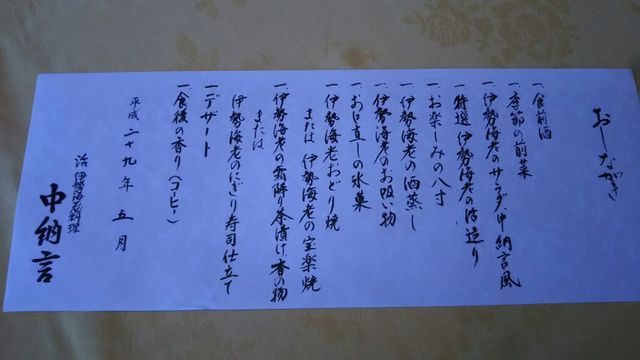 おしながき
一、食前酒
一、季節の前菜
一、伊勢海老のサラダ、中納言風
一、特選 伊勢海老の活造り
一、お楽しみの八寸
一、伊勢海老の酒蒸し
一、伊勢海老のお吸い物
一、お口直しの氷菓
一、伊勢海老おどり焼
または 伊勢海老の宝楽焼
一、伊勢海老の霜降り茶漬け、香の物
または
伊勢海老のにぎり寿司仕立て
一、デザート
一、食後の香り（コーヒー）
平成二十九年 五月
活 伊勢海老料理
中納言